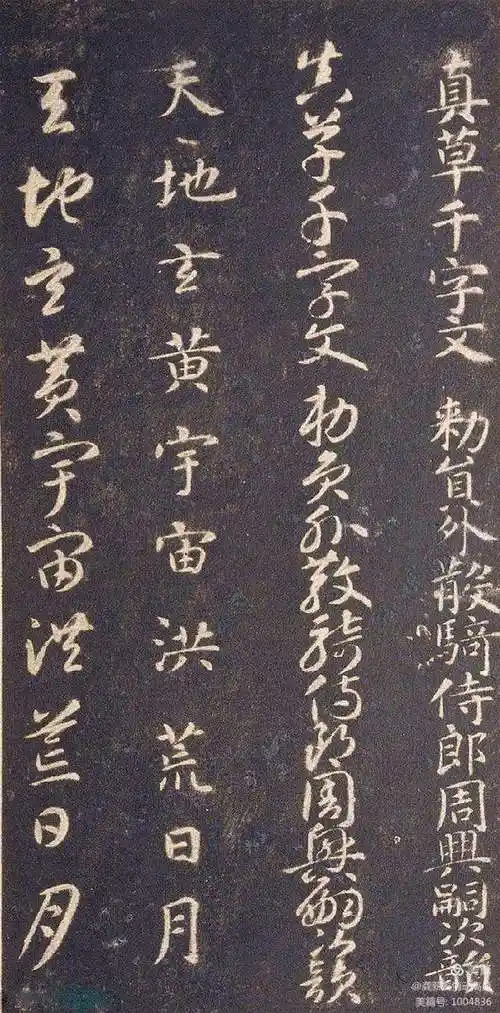 真草千字文 勑員外散騎侍郎周興嗣次韻
真草千字文 勑員外散騎侍郎周興嗣次韻
天地玄黃宇宙洪荒日月
天地玄黃宇宙洪荒日月
美篇号: 1004836